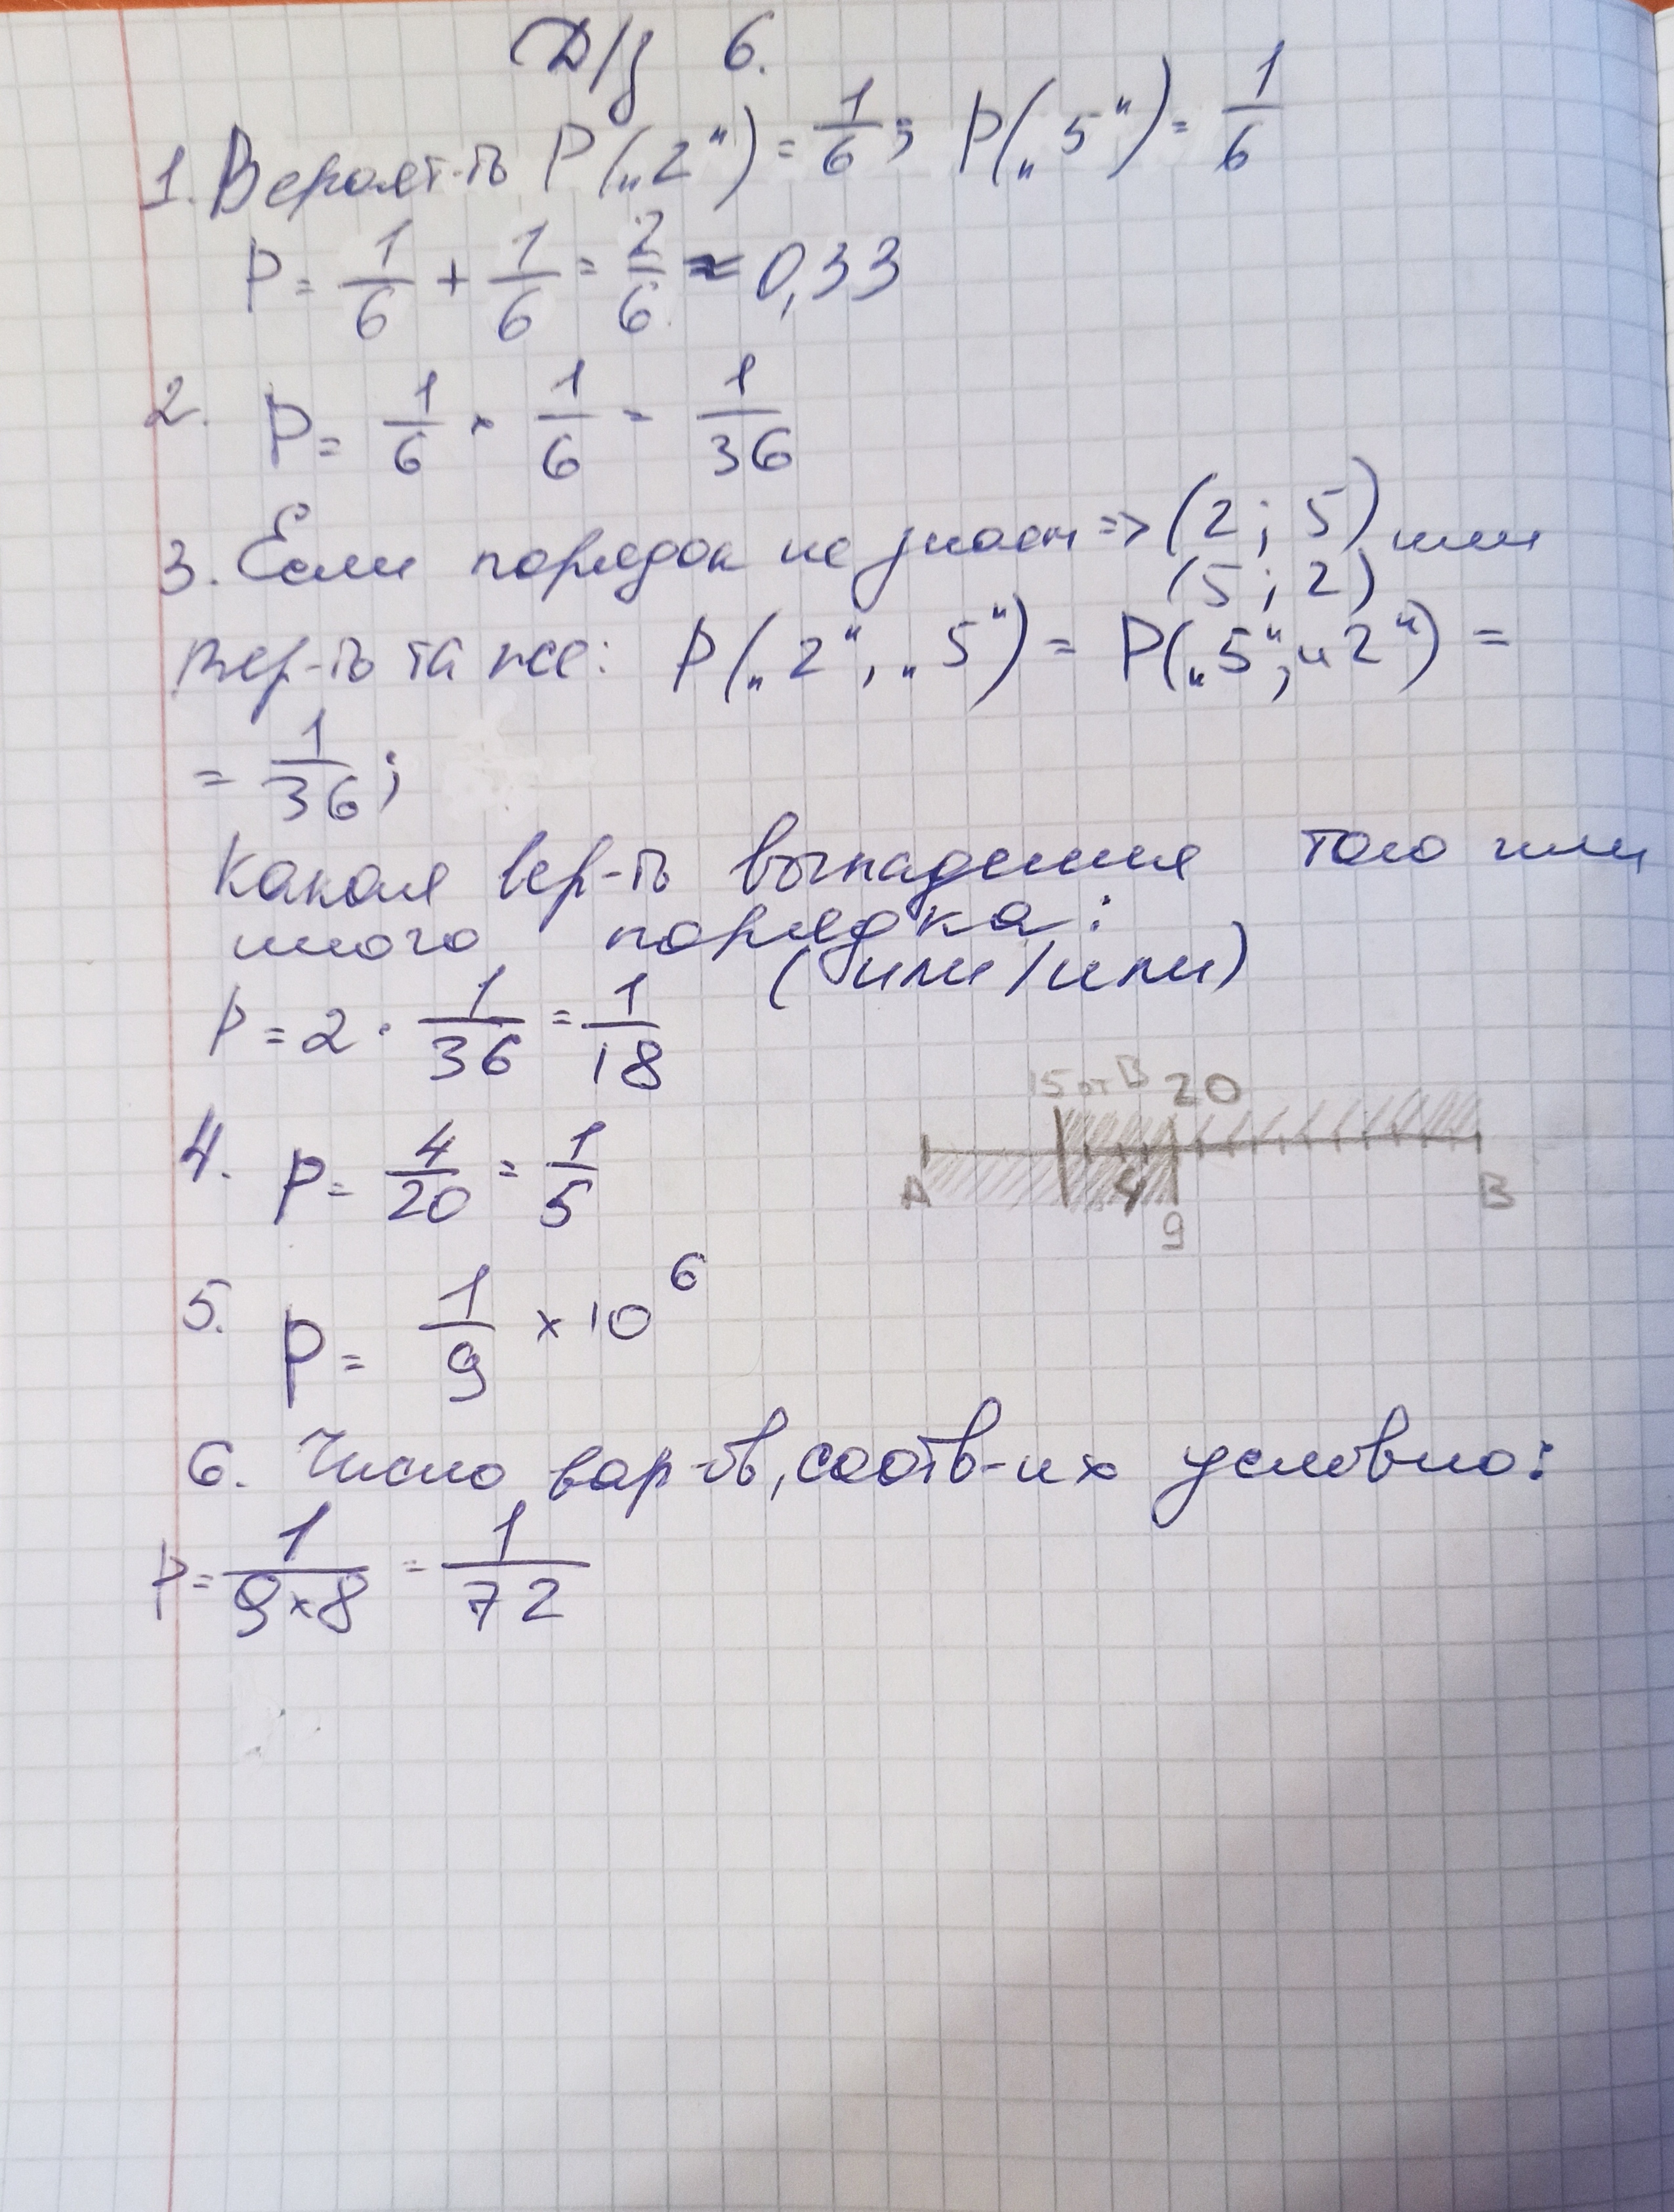 Д/з 6.
1. Вероят-ть P(„2“) = 1/6; P(„5“) = 1/6
P = 1/6 + 1/6 = 2/6 ≈ 0,33
2. P = 1/6 × 1/6 = 1/36
3. Если порядок не знаем => (2; 5) или
(5; 2)
вер-ть та же: P(„2“, „5“) = P(„5“, „2“) =
= 1/36;
Какая вер-ть выпадения того или
иного порядка:
(или/или)
P = 2 · 1/36 = 1/18
15 от B 20
4. P = 4/20 = 1/5
A 4 B
9
5. P = 1/9 × 10⁶
6. Число вар-ов, соотв-их условию:
P = 1/(9×8) = 1/72